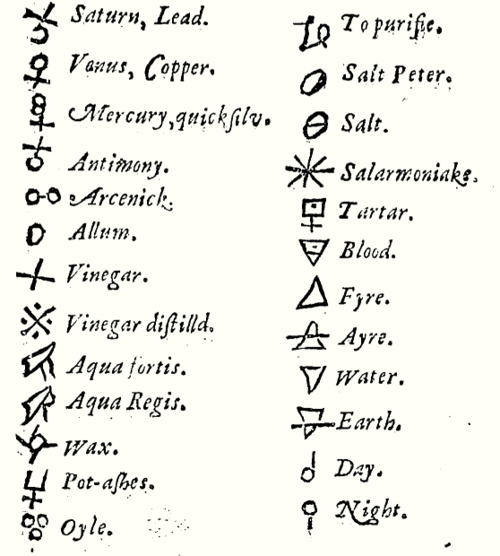 Saturn, Lead.
Vanus, Copper.
Mercury, quickſilv.
Antimony.
Arcenick.
Allum.
Vinegar.
Vinegar diſtilld.
Aqua fortis.
Aqua Regis.
Wax.
Pot-aſhes.
Oyle.
To purifie.
Salt Peter.
Salt.
Salarmoniake.
Tartar.
Blood.
Fyre.
Ayre.
Water.
Earth.
Day.
Night.